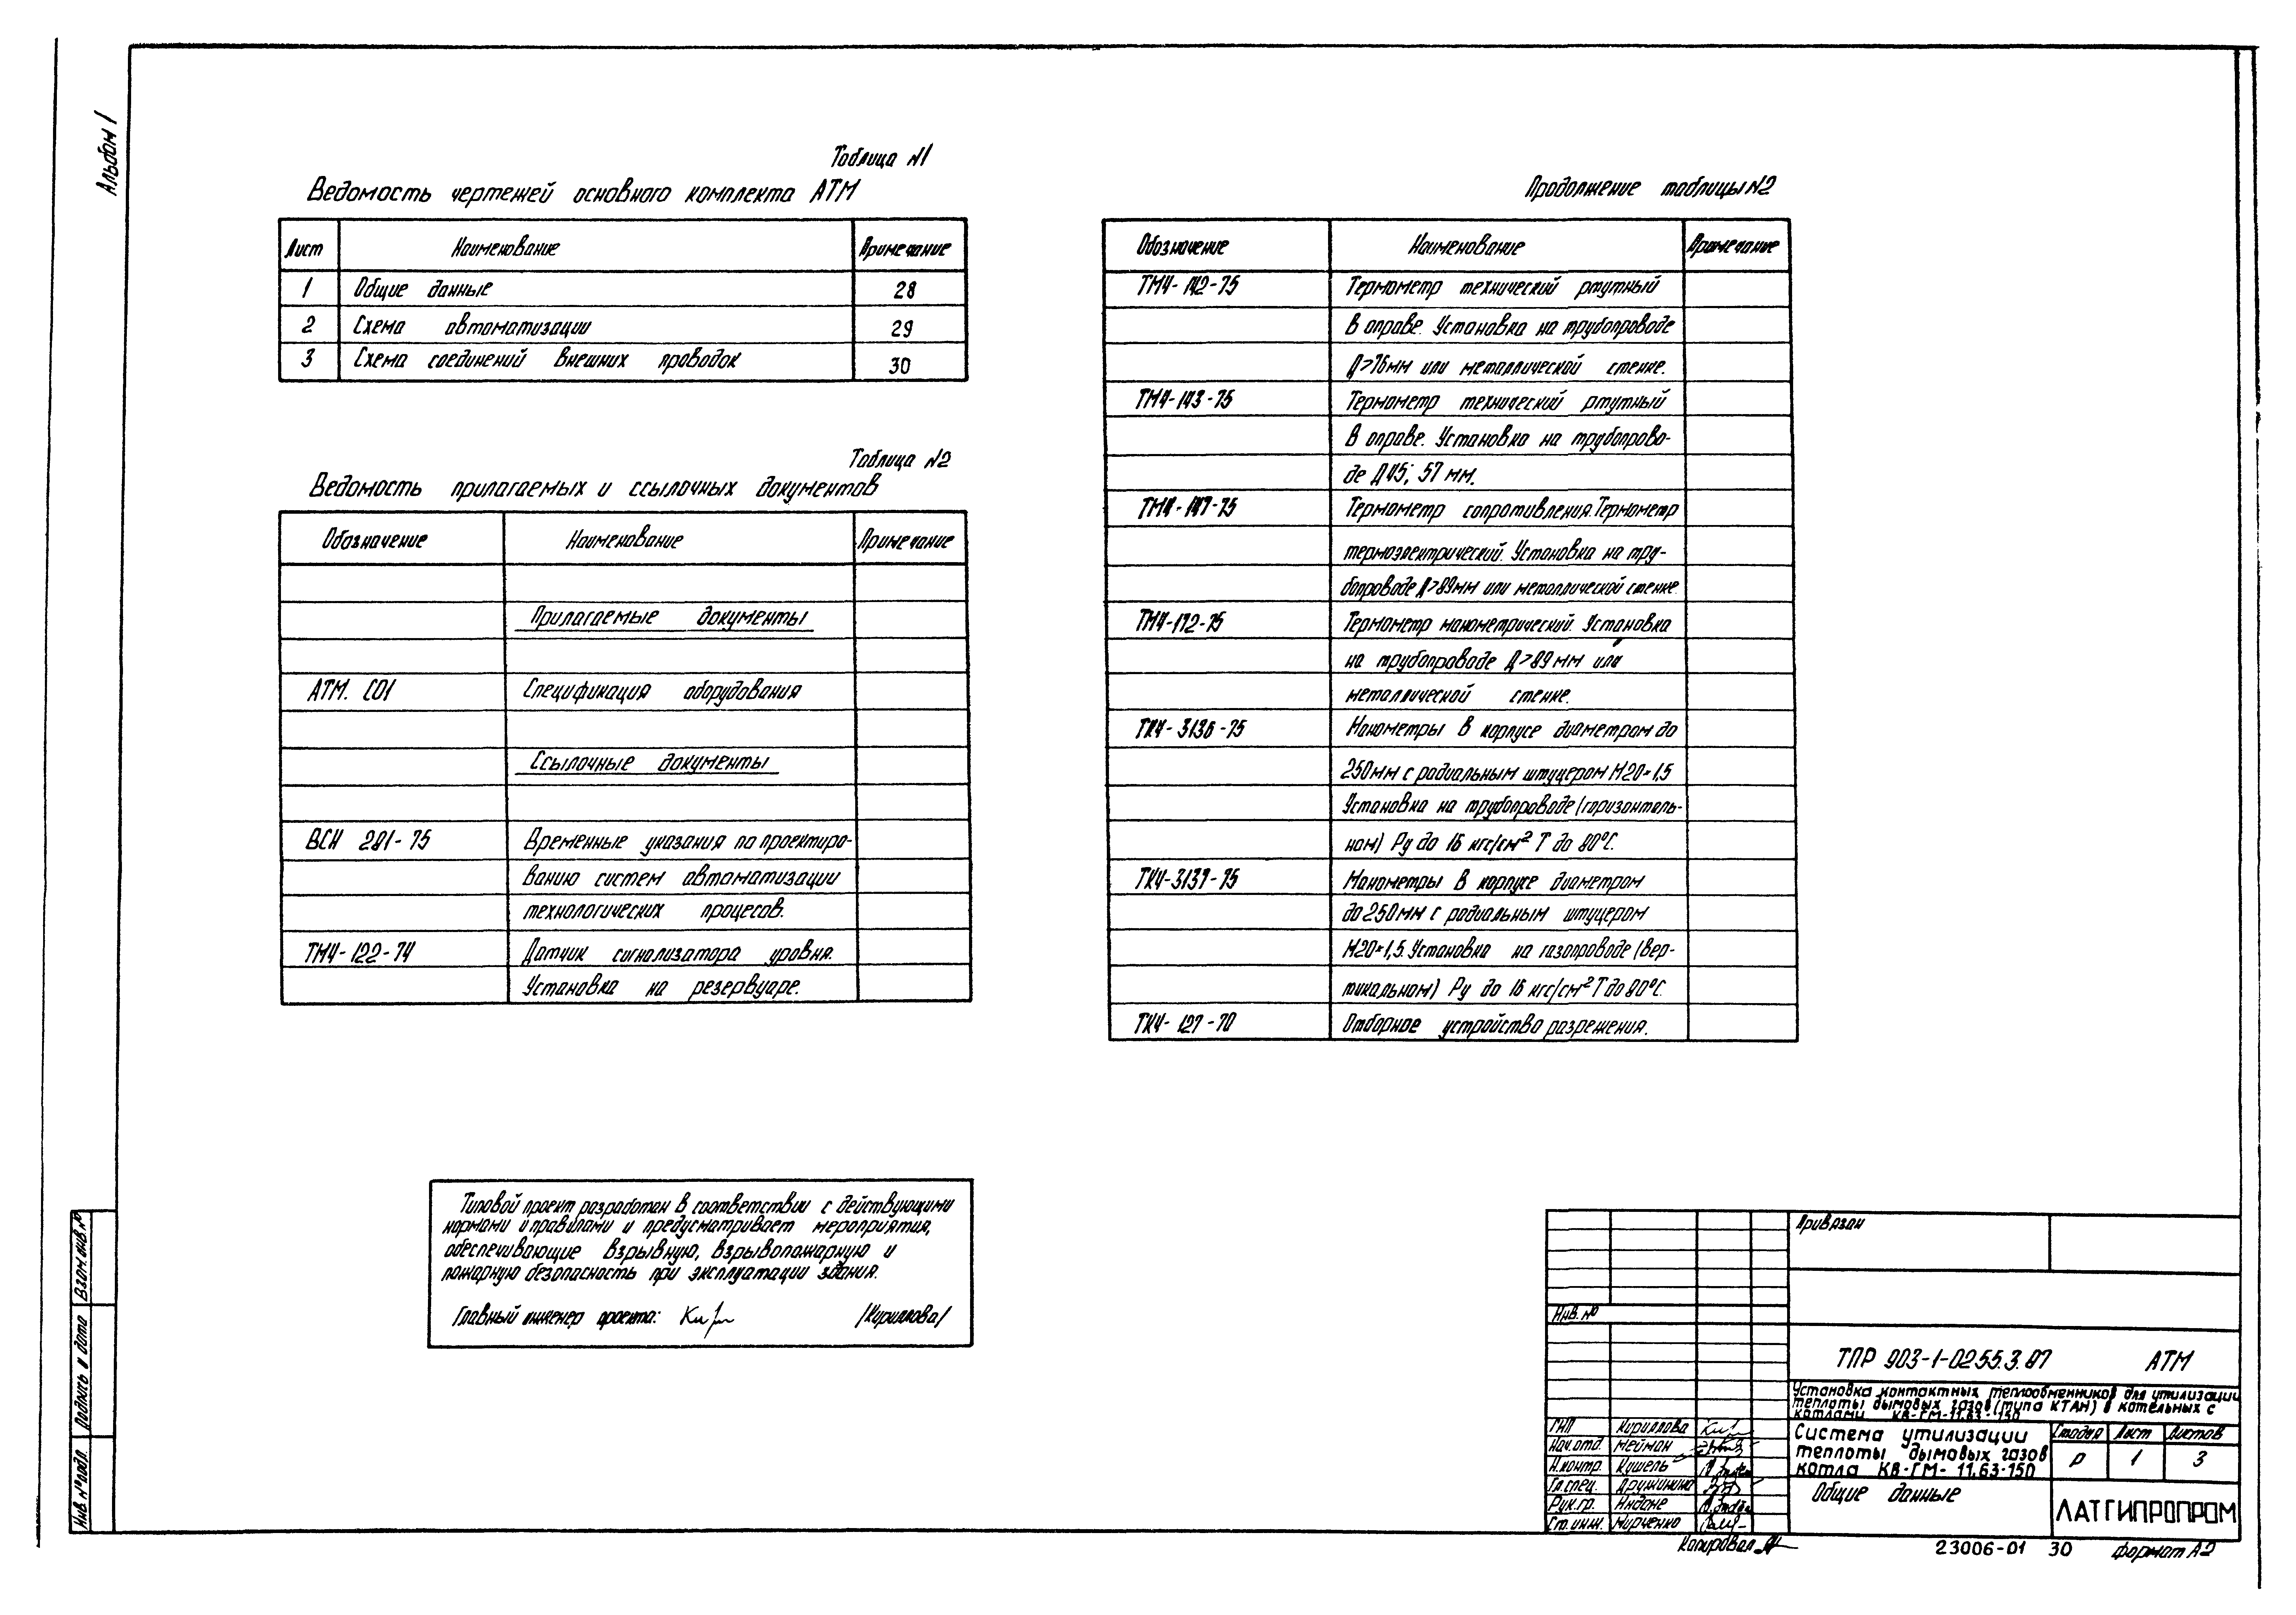 Альбом 1
Таблица №1
Ведомость чертежей основного комплекта АТМ
Лист Наименование Примечание
1 Общие данные 28
2 Схема автоматизации 29
3 Схема соединений внешних проводок 30
Таблица №2
Ведомость прилагаемых и ссылочных документов
Обозначение Наименование Примечание
Прилагаемые документы
АТМ. СО1 Спецификация оборудования
Ссылочные документы
ВСН 281-75 Временные указания по проектиро-
ванию систем автоматизации
технологических процесов.
ТМ4-122-74 Датчик сигнализатора уровня.
Установка на резервуаре.
Продолжение таблицы №2
Обозначение Наименование Примечание
ТМ4-142-75 Термометр технический ртутный
в оправе. Установка на трубопроводе
Д>76мм или металлической стенке.
ТМ4-143-75 Термометр технический ртутный
в оправе. Установка на трубопрово-
де Д45; 57 мм.
ТМ4-147-75 Термометр сопротивления.Термометр
термоэлектрический. Установка на тру-
бопроводе Д>89мм или металлической стенке.
ТМ4-172-75 Термометр манометрический. Установка
на трубопроводе Д>89 мм или
металлической стенке.
ТК4-3136-75 Манометры в корпусе диаметром до
250мм с радиальным штуцером М20×1,5
Установка на трубопроводе (горизонталь-
ном) Ру до 16 кгс/см² Т до 80°С.
ТК4-3137-75 Манометры в корпусе диаметром
до 250мм с радиальным штуцером
М20×1,5. Установка на газопроводе (вер-
тикальном) Ру до 16 кгс/см² Т до 80°С.
ТК4-127-70 Отборное устройство разрежения.
Типовой проект разработан в соответствии с действующими
нормами и правилами и предусматривает мероприятия,
обеспечивающие взрывную, взрывопожарную и
пожарную безопасность при эксплуатации здания.
Главный инженер проекта: /Кириллова/
Взам. инв. №
Подпись и дата
Инв. № подл.
Привязан
Инв. №
ТПР 903-1-0255.3.87 АТМ
Установка контактных теплообменников для утилизации
теплоты дымовых газов (типа КТАН) в котельных с
котлами КВ-ГМ-11,63-150
ГИП Кириллова
Нач.отд. Мейман
Н.контр. Кушель
Гл.спец. Дружинина
Рук.гр. Индане
Ст.инж. Мирченко
Система утилизации
теплоты дымовых газов
котла КВ-ГМ-11,63-150
Стадия Лист Листов
Р 1 3
Общие данные
ЛАТГИПРОПРОМ
Копировал
23006-01 30 Формат А2